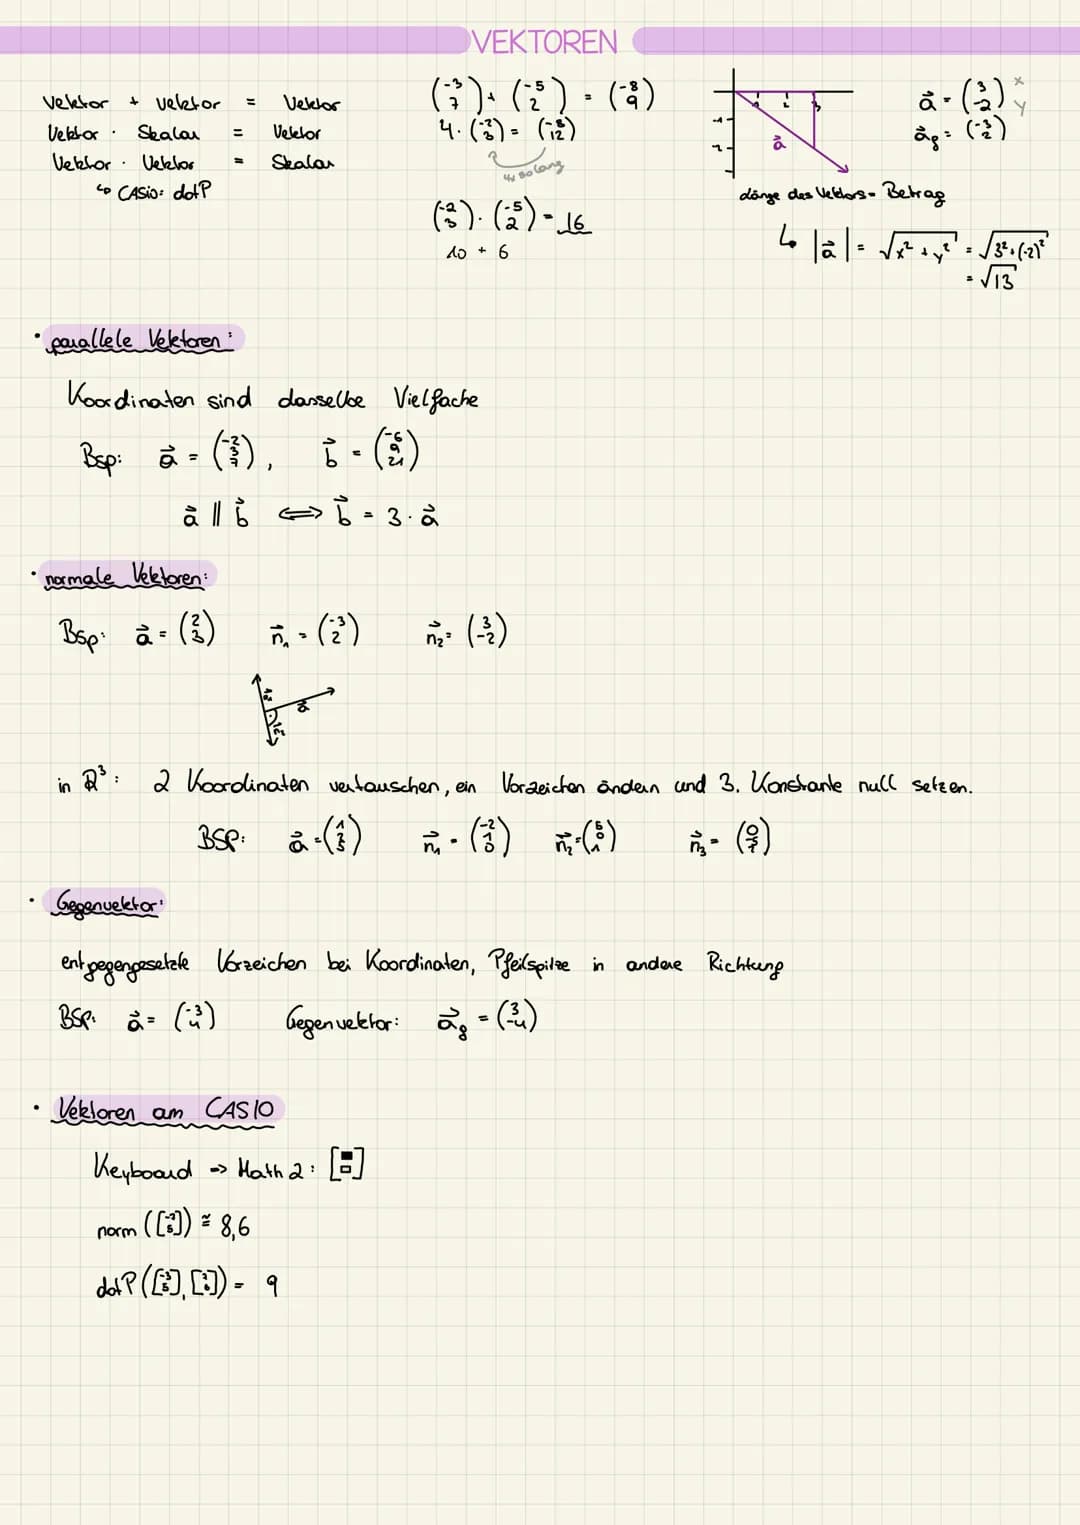 VEKTOREN
Vektor + Vektor = Vektor
Vektor · Skalar = Vektor
Vektor · Vektor = Skalar
↳ CASIO: dotP
(-3 7) + (-5 2) = (-8 9)
4 · (-2 3) = (-8 12)
4x so lang
(-2 3) · (-5 2) = 16
10 + 6
1 2 3
-1
-2
a⃗
a⃗ = (3 -2) x y
a⃗g = (-3 2)
Länge des Vektors = Betrag
↳ |a⃗| = √x² + y² = √3² + (-2)²
= √13
• parallele Vektoren:
Koordinaten sind dasselbe Vielfache
Bsp: a⃗ = (-2 3 7), b⃗ = (-6 9 21)
a⃗ ∥ b⃗ ⟺ b⃗ = 3 · a⃗
• normale Vektoren:
Bsp: a⃗ = (2 3) n⃗₁ = (-3 2) n⃗₂ = (3 -2)
n⃗₁
a⃗
n⃗₂
in R³: 2 Koordinaten vertauschen, ein Vorzeichen ändern und 3. Konstante null setzen.
BSP: a⃗ = n⃗₁ = (-2 1 0) n⃗₂ = n⃗₃ =
• Gegenvektor:
entgegengesetzte Vorzeichen bei Koordinaten, Pfeilspitze in andere Richtung
BSP: a⃗ = (-3 4) Gegenvektor: a⃗g = (3 -4)
• Vektoren am CASIO
Keyboard → Math 2:
norm ([-7 5]) ≅ 8,6
dotP = 9